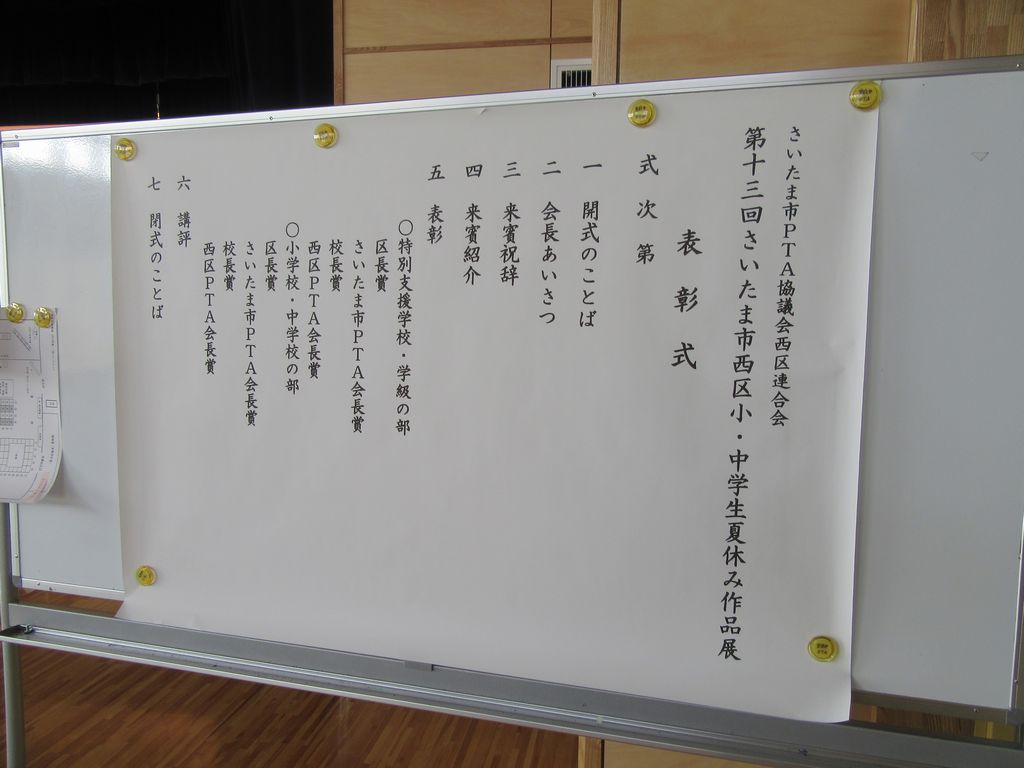 さいたま市PTA協議会西区連合会
第十三回さいたま市西区小・中学生夏休み作品展
表彰式
式次第
一 開式のことば
二 会長あいさつ
三 来賓祝辞
四 来賓紹介
五 表彰
〇特別支援学校・学級の部
区長賞
さいたま市PTA会長賞
校長賞
西区PTA会長賞
〇小学校・中学校の部
区長賞
さいたま市PTA会長賞
校長賞
西区PTA会長賞
六 講評
七 閉式のことば